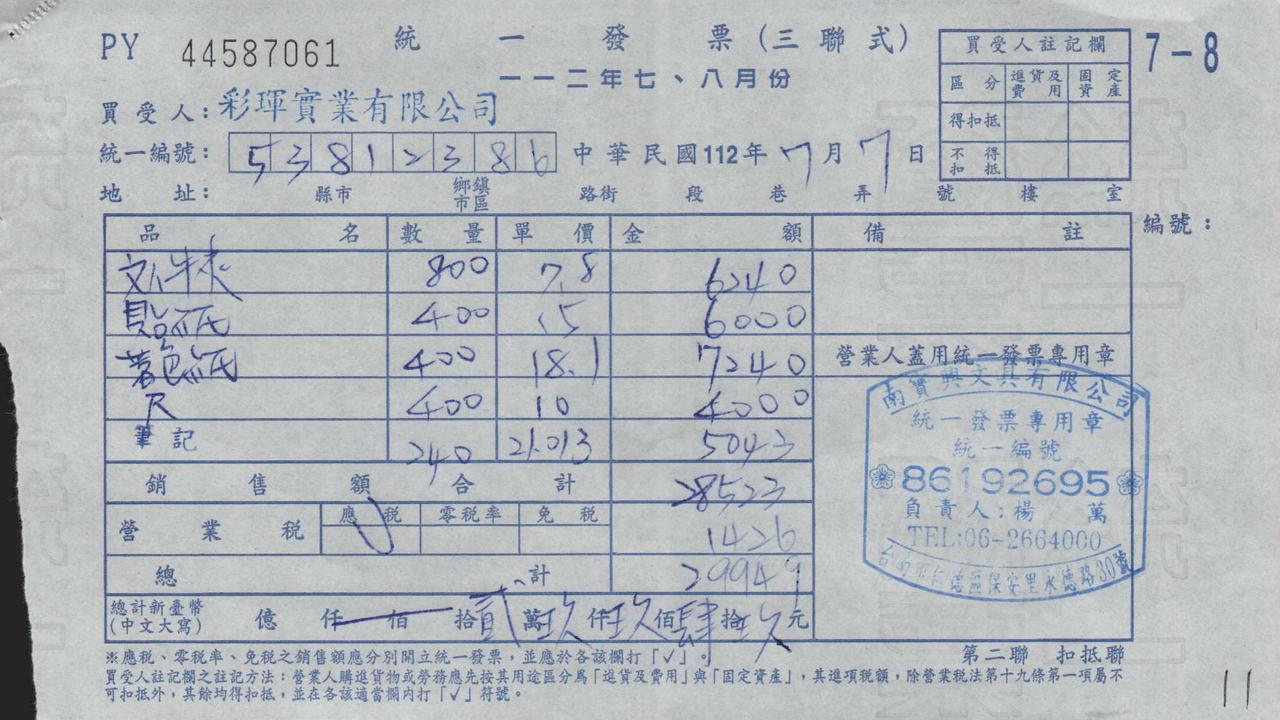 PY 44587061 統一發票(三聯式)
一一二年七、八月份
7-8
買受人註記欄
區分 進貨及費用 固定資產
得扣抵
不得扣抵
買受人:彩琿實業有限公司
統一編號: 53812386 中華民國112年7月7日
地址: 縣市 鄉鎮市區 路街 段 巷 弄 號 樓 室
編號:
品名 數量 單價 金額 備註
文件夾 800 7.8 6240
貼紙 400 15 6000
著色紙 400 18.1 7240
營業人蓋用統一發票專用章
尺 400 10 4000
筆記 240 21.013 5043
銷售額合計 28523
營業稅 應稅 零稅率 免稅 1426
總計 29949
總計新臺幣(中文大寫) 億 仟 佰 拾貳萬玖仟玖佰肆拾玖元
南寶興文具有限公司
統一發票專用章
統一編號
86192695
負責人:楊 萬
TEL:06-2664000
台南市仁德區保安里永德路30號
※應稅、零稅率、免稅之銷售額應分別開立統一發票,並應於各該欄打「✓」。
第二聯 扣抵聯
買受人註記欄之註記方法:營業人購進貨物或勞務應先按其用途區分為「進貨及費用」與「固定資產」,其進項稅額,除營業稅法第十九條第一項屬不
可扣抵外,其餘均得扣抵,並在各該適當欄內打「✓」符號。
11